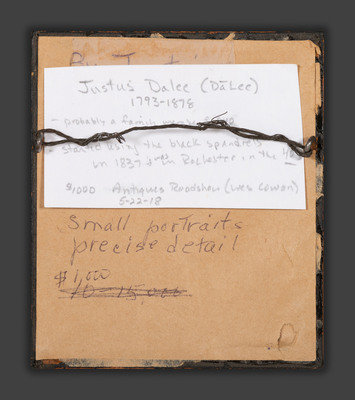 By Just
Justus Dalee (DāLee)
1793-1878
- probably a family member
- started using the black spandrels
in 1837 from Rochester in the
$1000 Antiques Roadshow (Wes Cowan)
5-22-18
Small portraits
precise detail
$1,000
10-15,000